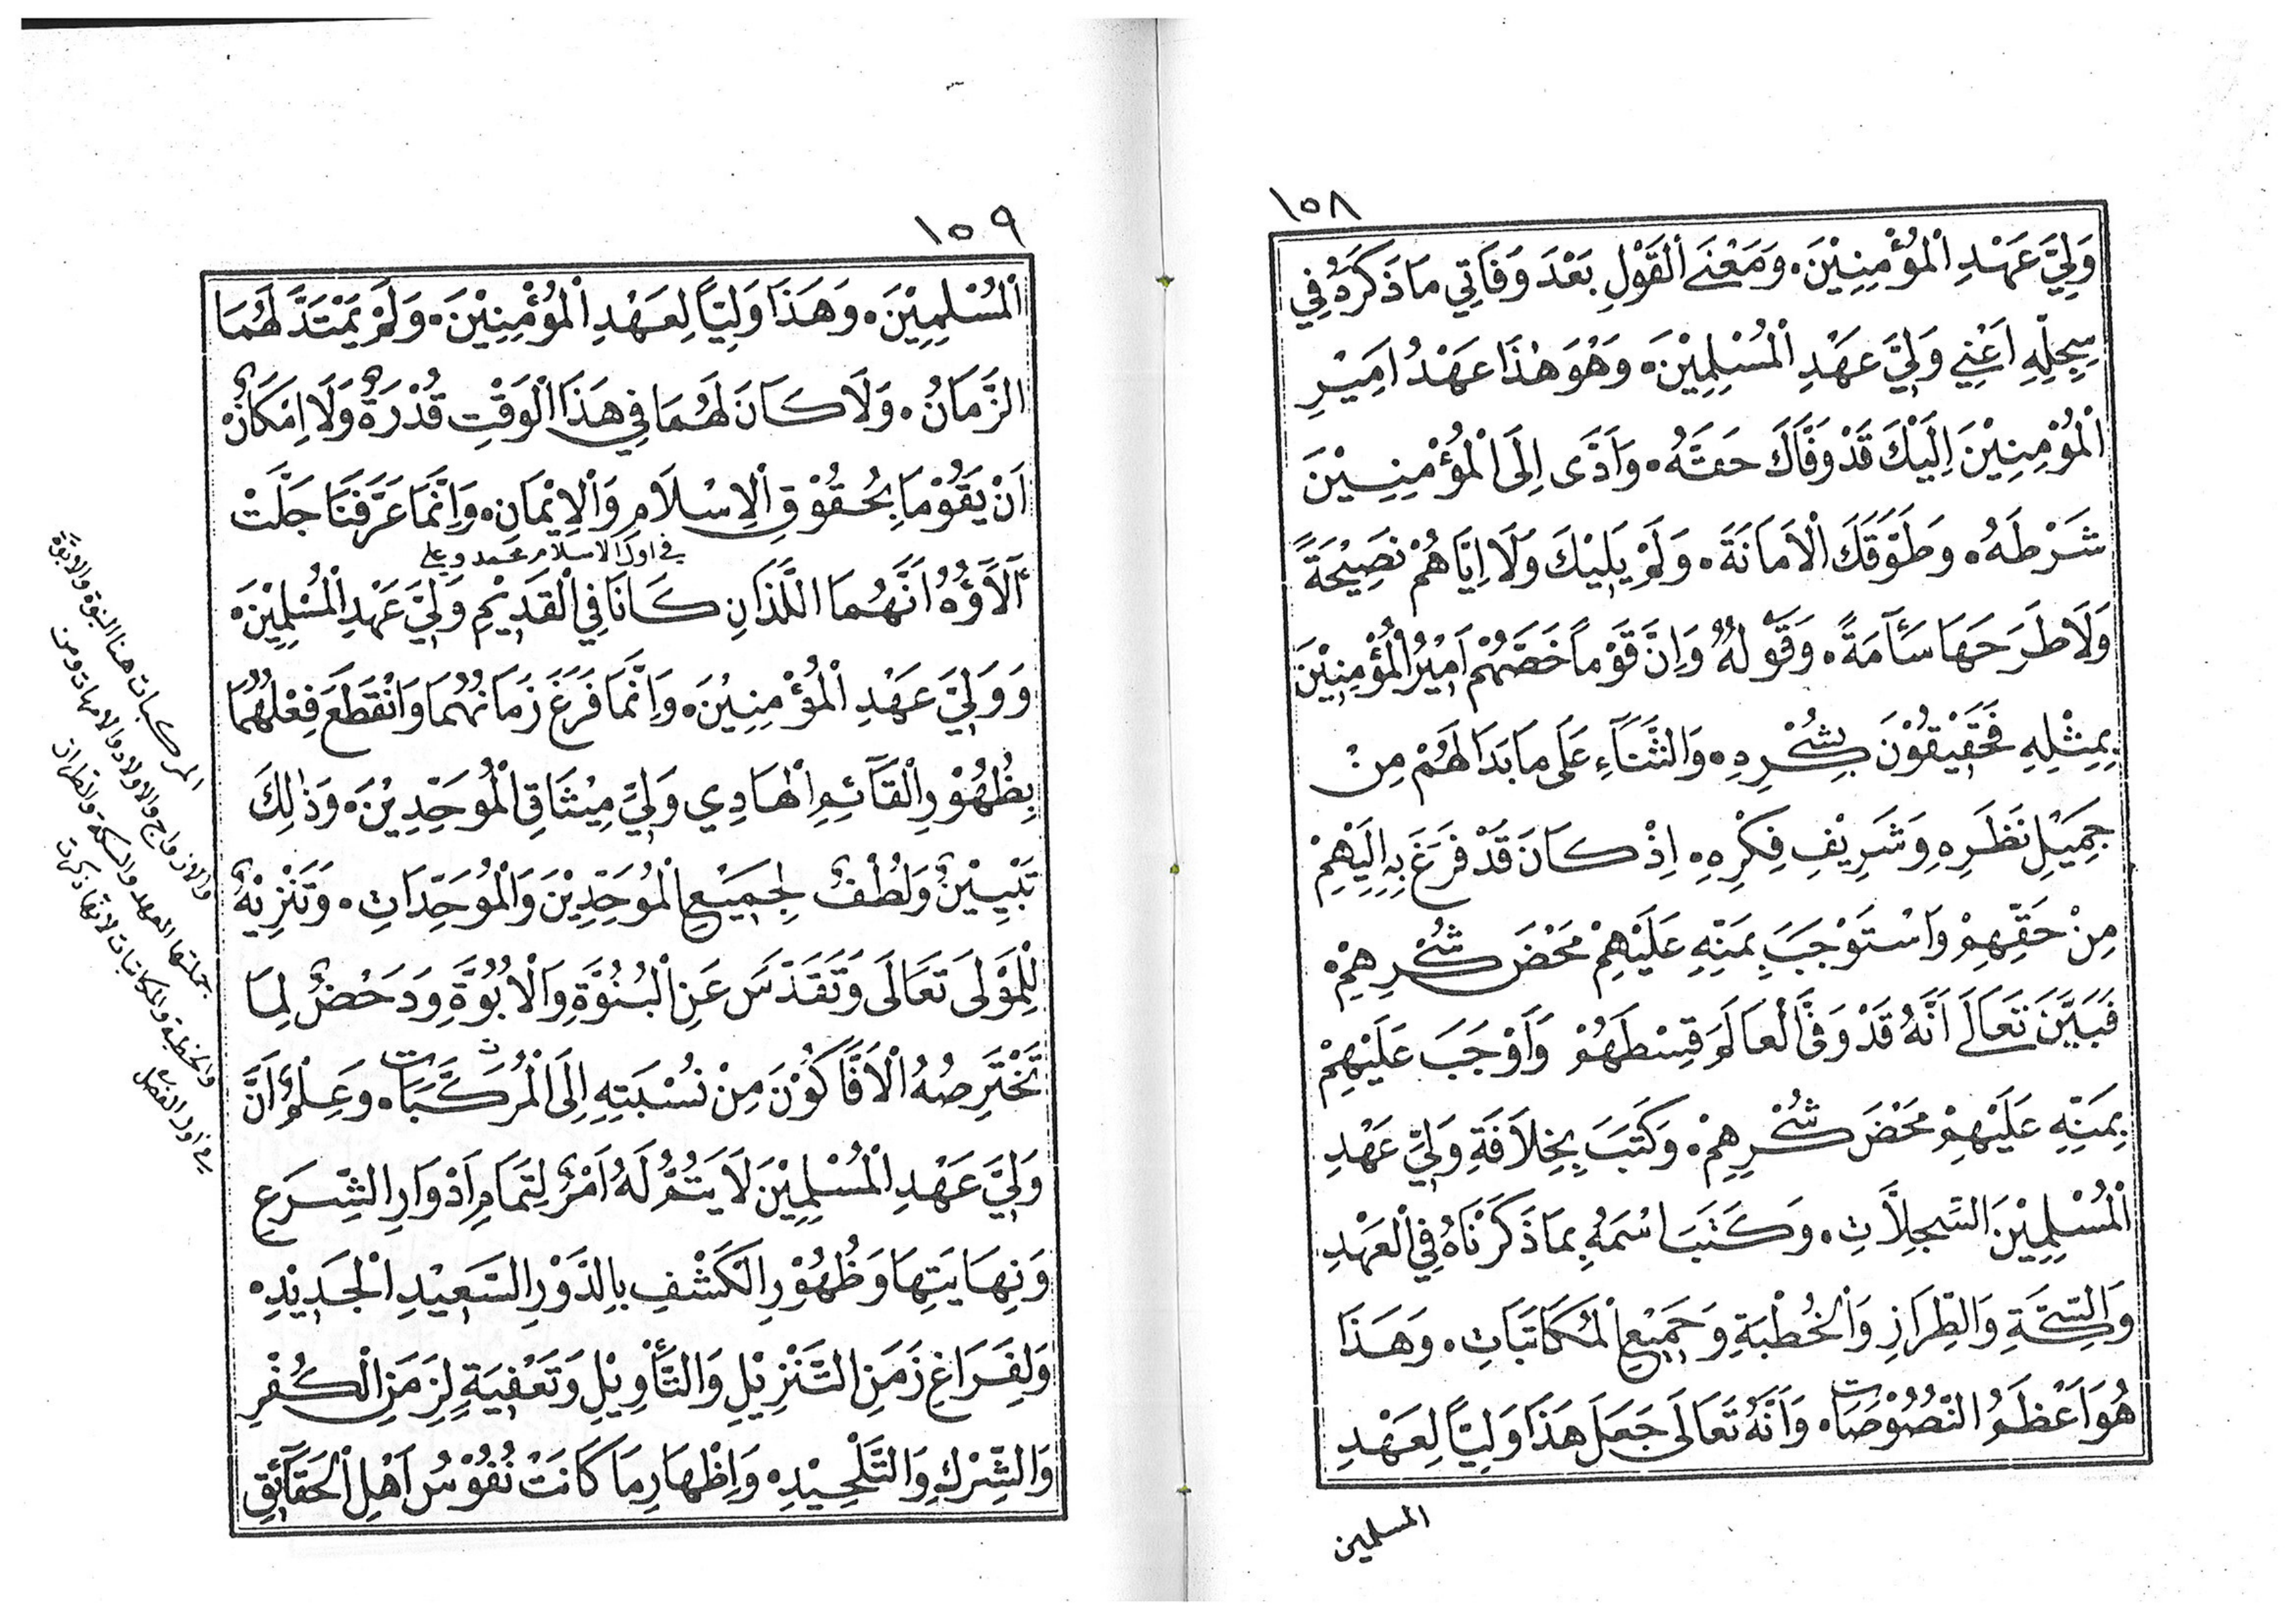 ١٥٨
وَلِيَّ عَهْدِ الْمُؤْمِنِيْنَ. وَمَعْنَى الْقَوْلِ بَعْدَ وَفَاتِي مَا ذَكَرَهُ فِي
سِجِلِّهِ اَعْنِي وَلِيَّ عَهْدِ الْمُسْلِمِيْنَ. وَهُوَ هٰذَا عَهْدُ اَمِيْرِ
الْمُؤْمِنِيْنَ اِلَيْكَ قَدْ وَفَّاكَ حَقَّهُ. وَاَدَّى اِلَى الْمُؤْمِنِيْنَ
شَرْطَهُ. وَطَوَّقَكَ الْاَمَانَةَ. وَلَمْ يَلِيْكَ وَلَا اِيَّاهُمْ نَصِيْحَةً
وَلَا طَرَحَهَا سَآمَةً. وَقَوْلُهُ وَاِنَّ قَوْماً خَصَّهُمْ اَمِيْرُ الْمُؤْمِنِيْنَ
بِمِثْلِهِ فَحَقِيْقُوْنَ بِشُكْرِهِ. وَالثَّنَآءِ عَلَى مَا بَدَا لَهُمْ مِنْ
جَمِيْلِ نَظَرِهِ وَشَرِيْفِ فِكْرِهِ. اِذْ كَانَ قَدْ فَرَغَ بِهِ اِلَيْهِمْ
مِنْ حَقِّهِمْ وَاسْتَوْجَبَ بِمَنِّهِ عَلَيْهِمْ مَحْضَ شُكْرِهِمْ.
فَبَيَّنَ تَعَالَى اَنَّهُ قَدْ وَفَّى الْعَالَمَ قِسْطَهُمْ وَاَوْجَبَ عَلَيْهِمْ
بِمَنِّهِ عَلَيْهِمْ مَحْضَ شُكْرِهِمْ. وَكَتَبَ بِخِلَافَةِ وَلِيِّ عَهْدِ
الْمُسْلِمِيْنَ السِّجِلَّاتِ. وَكَتَبَ اسْمَهُ بِمَا ذَكَرْنَاهُ فِي الْعَهْدِ
وَالسِّكَّةِ وَالطِّرَازِ وَالْخُطْبَةِ وَجَمِيْعِ الْمُكَاتَبَاتِ. وَهَذَا
هُوَ اَعْظَمُ النُّصُوْصَاتِ. وَاَنَّهُ تَعَالَى جَعَلَ هَذَا وَلِيًّا لِعَهْدِ
المسلمين
١٥٩
الْمُسْلِمِيْنَ. وَهَذَا وَلِيّاً لِعَهْدِ الْمُؤْمِنِيْنَ. وَلَمْ يَمْتَدَّ لَهُمَا
الزَّمَانُ. وَلَا كَانَ لَهُمَا فِي هَذَا الْوَقْتِ قُدْرَةٌ وَلَا اِمْكَانٌ
اَنْ يَقُوْمَا بِحُقُوْقِ الْاِسْلَامِ وَالْاِيْمَانِ. وَاِنَّمَا عَرَّفَنَا جَلَّتْ
في اول الاسلام محمد وعلي
آلَآؤُهُ اَنَّهُمَا اللَّذَانِ كَانَا فِي الْقَدِيْمِ وَلِيَّ عَهْدِ الْمُسْلِمِيْنَ.
وَوَلِيَّ عَهْدِ الْمُؤْمِنِيْنَ. وَاِنَّمَا فَرَغَ زَمَانُهُمَا وَانْقَطَعَ فِعْلُهُمَا
بِظُهُوْرِ الْقَآئِمِ الْهَادِي وَلِيِّ مِيْثَاقِ الْمُوَحِّدِيْنَ. وَذٰلِكَ
تَبْيِيْنٌ وَلُطْفٌ لِجَمِيْعِ الْمُوَحِّدِيْنَ وَالْمُوَحِّدَاتِ. وَتَنْزِيْهٌ
لِلْمَوْلَى تَعَالَى وَتَقَدَّسَ عَنِ الْبُنُوَّةِ وَالْاُبُوَّةِ وَدَحْضٌ لِمَا
تَخْتَرِصُهُ الْاَفَّاكُوْنَ مِنْ نُسْبَتِهِ اِلَى الْمُرَكَّبَاتِ. وَعِلْمٌ اَنَّ
وَلِيَّ عَهْدِ الْمُسْلِمِيْنَ لَا يَتُمُّ لَهُ اَمْرٌ لِتَمَامِ اَدْوَارِ الشَّرَعِ
وَنِهَايَتِهَا وَظُهُوْرِ الْكَشْفِ بِالدَّوْرِ السَّعِيْدِ الْجَدِيْدِ.
وَلِفَرَاغِ زَمَنِ التَّنْزِيْلِ وَالتَّأْوِيْلِ وَتَعْفِيَةٍ لِزَمَنِ الْكُفْرِ
وَالشِّرْكِ وَالتَّلْحِيْدِ. وَاِظْهَارِ مَا كَانَتْ نُفُوْسُ اَهْلِ الْحَقَآئِقِ
المركبات هنا النبوة والابوة
والازواج والاولاد والامهات ومن
جملتها العهد والسكة والطراز
والخطبة والمكاتبات لانها ذكرت
في اول الفصل